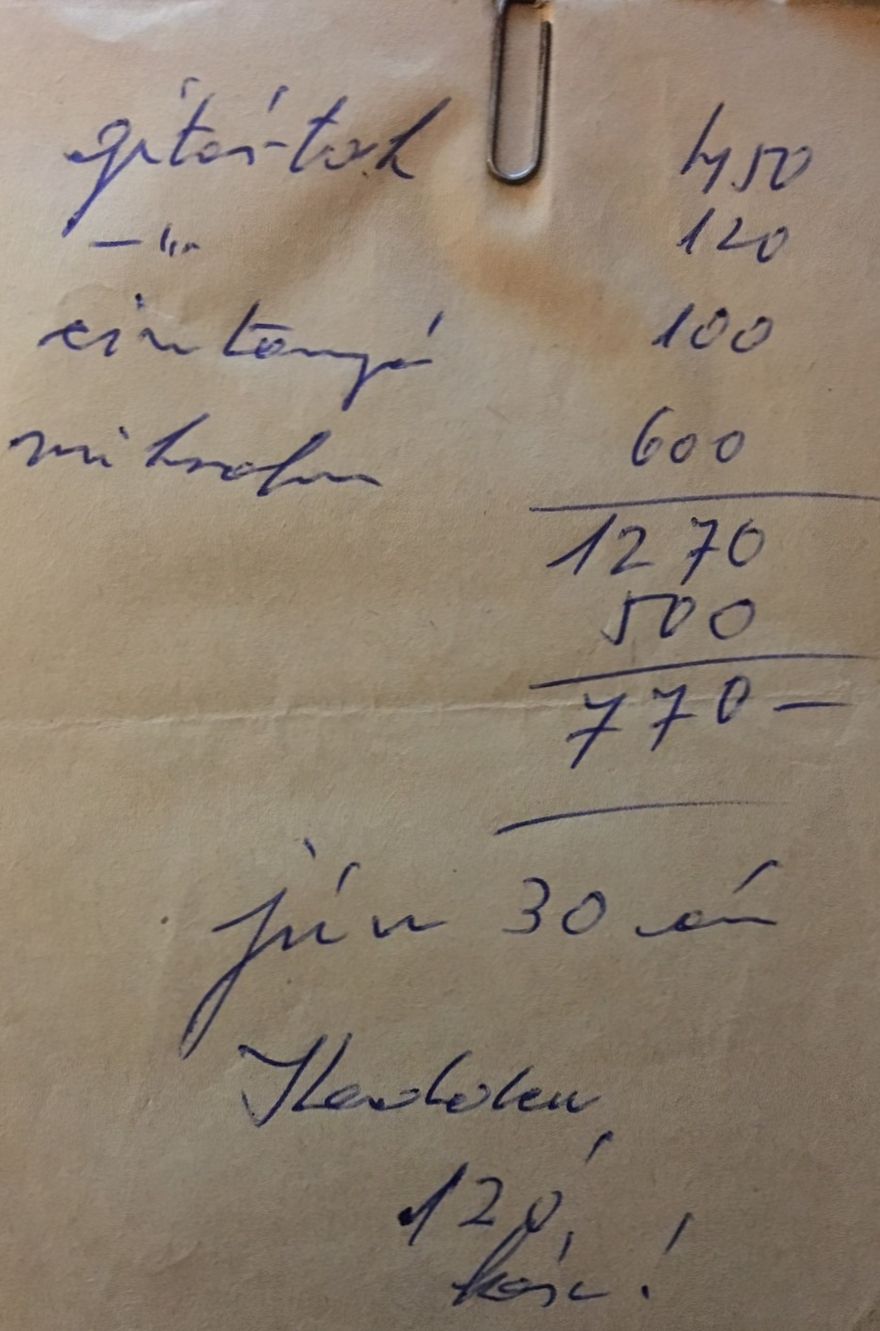 gitár-tok 450
—"— 120
cintanyér 100
mikrofon 600
1270
500
770 —
jún 30 án
120